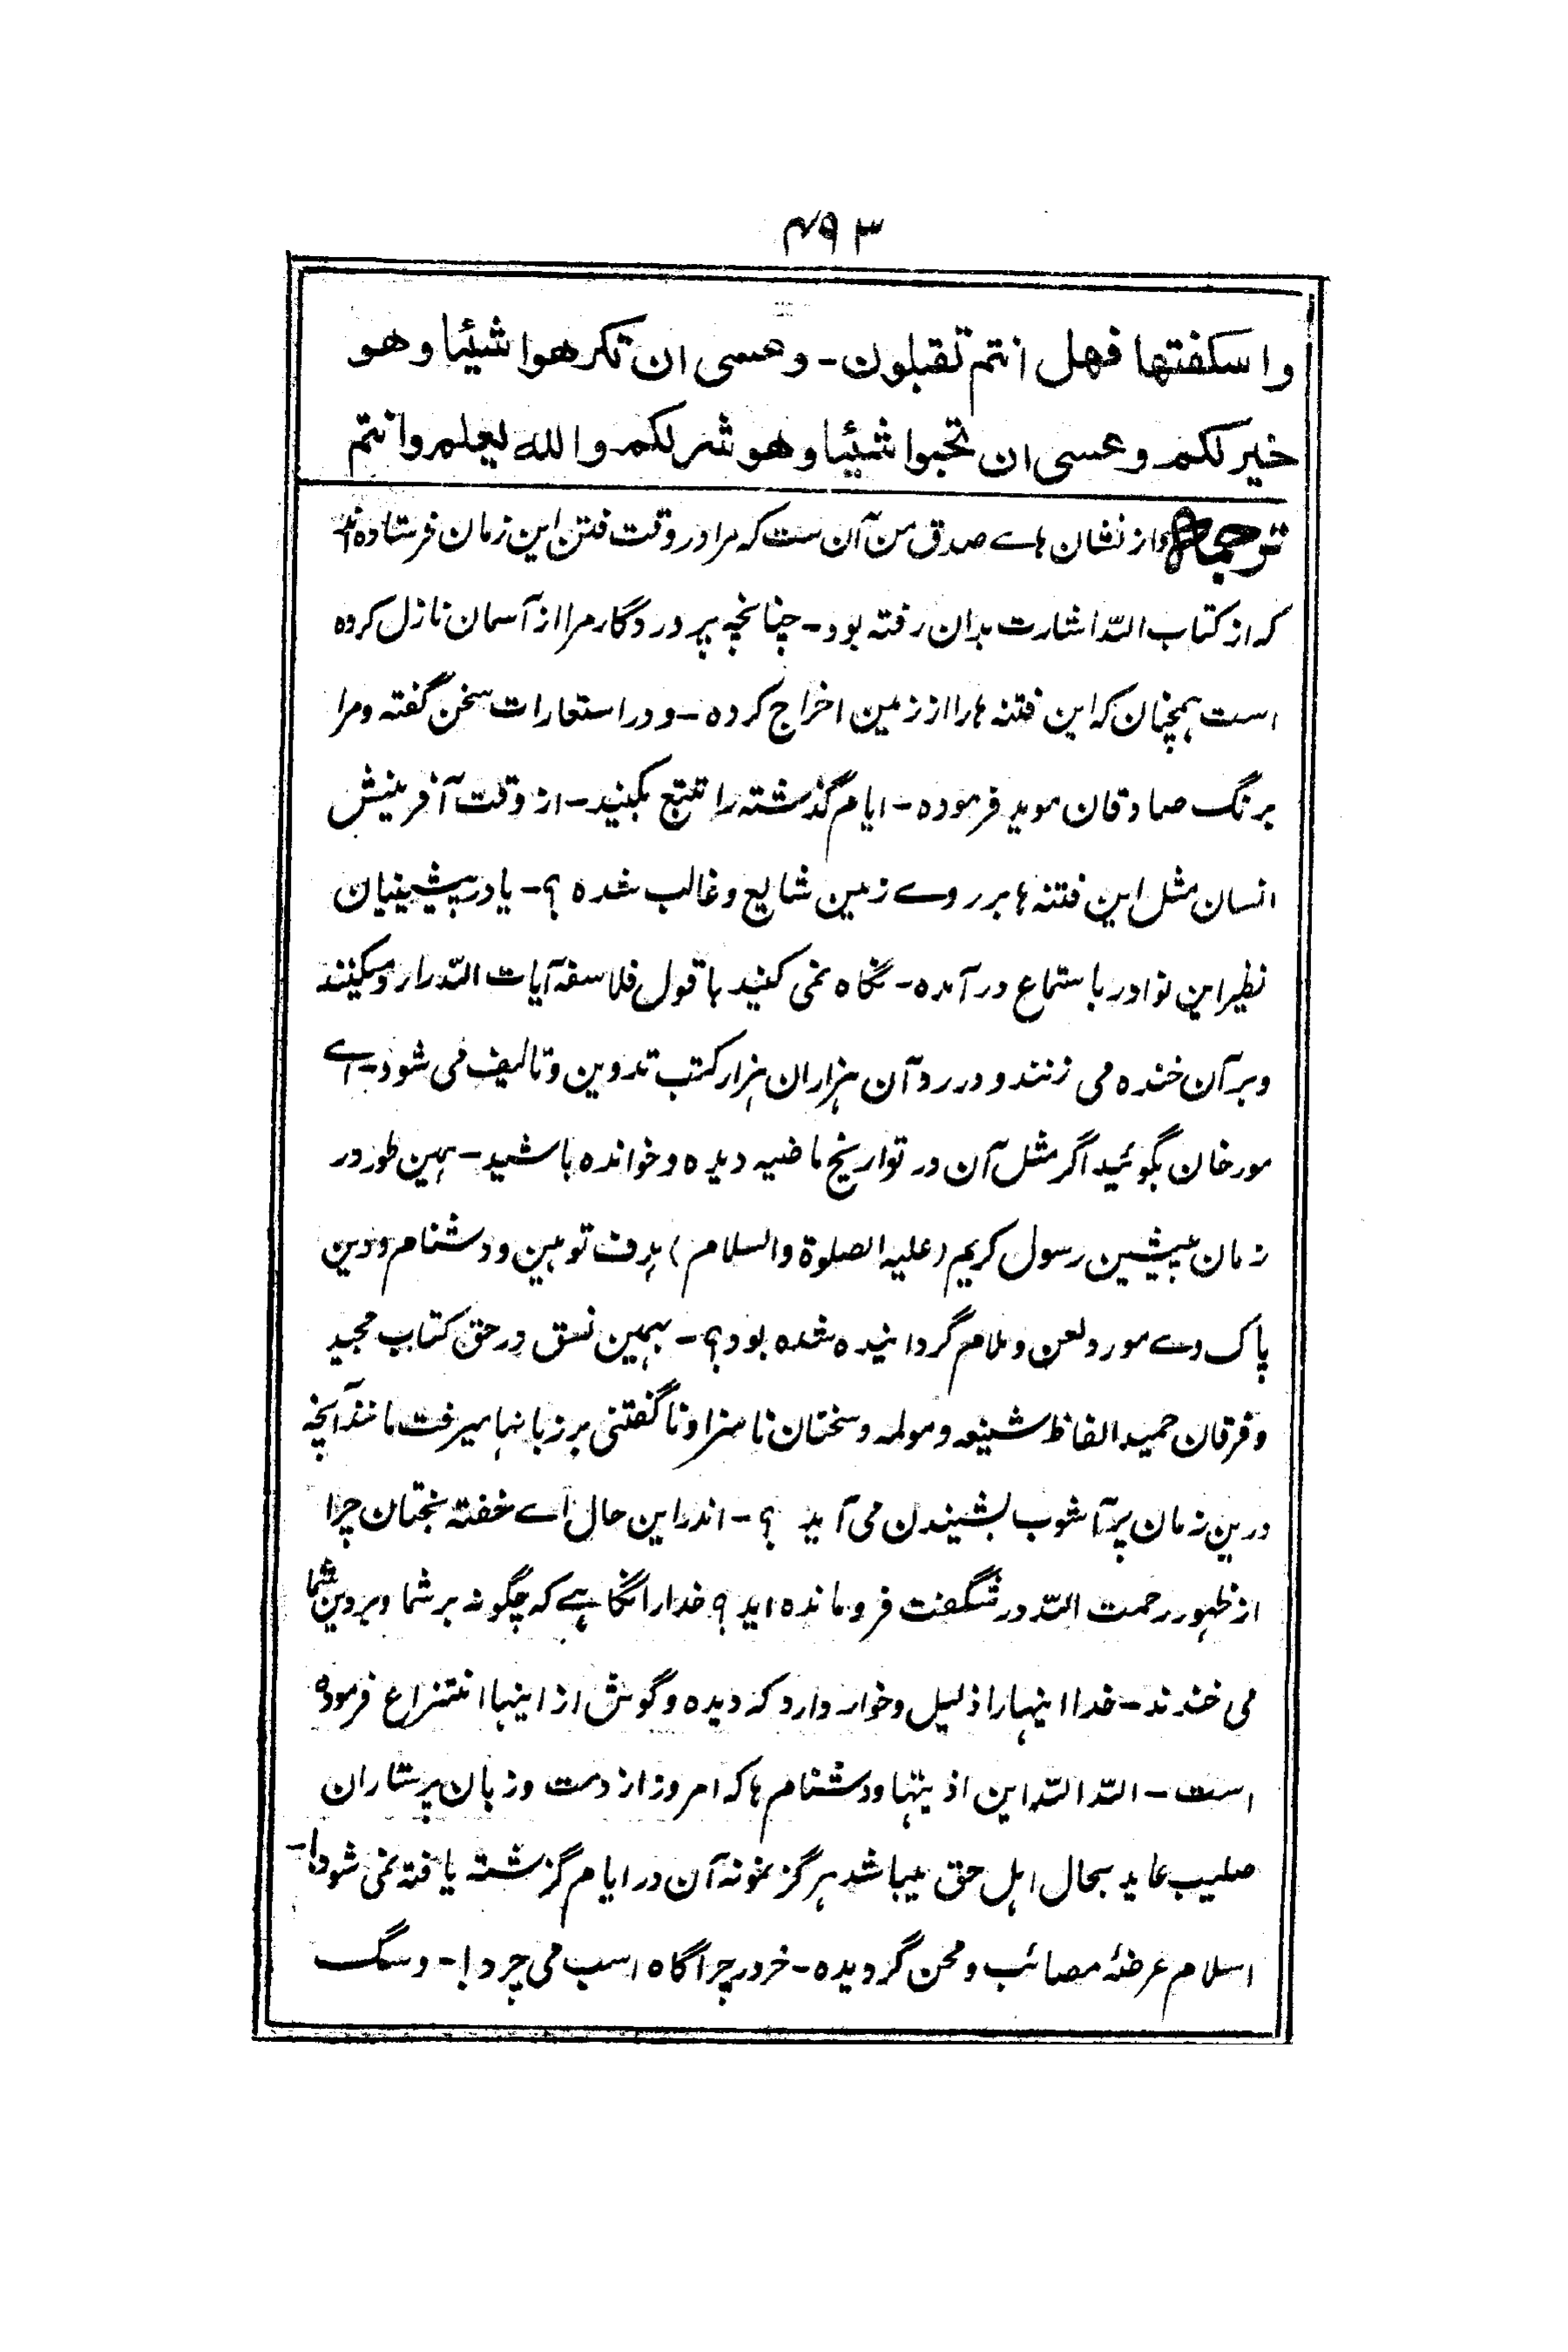 ۴۹۳
واسكفتها فهل انتم تقبلون۔ وعسى ان تكرهوا شيئا وهو
خير لكم وعسى ان تحبوا شيئا وهو شر لكم والله يعلم وانتم
ترجمہ واز نشان ہاے صدق من آن ست کہ مرا در وقت فتن این زمان فرستادہ اند
کہ از کتاب اللہ اشارت بدان رفتہ بود۔ چنانچہ پروردگار مرا از آسمان نازل کردہ
است ہمچنان کہ این فتنہ ہا را از زمین اخراج کردہ۔ و در استعارات سخن گفتہ و مرا
برنگ صادقان موید فرمودہ۔ ایام گذشتہ را تتبع بکنید۔ از وقت آفرینش
انسان مثل این فتنہ ہا بر روے زمین شایع و غالب شدہ ؟۔ یا در پیشینیان
نظیر این نوادر باستماع در آمدہ۔ نگاہ نمی کنید با قول فلاسفہ آیات اللہ را رد میکنند
و بر آن خندہ می زنند و در رد آن ہزاران ہزار کتب تدوین و تالیف می شود۔ اے
مورخان بگوئید اگر مثل آن در تواریخ ماضیہ دیدہ و خواندہ باشید۔ بہمین طور در
زمان پیشین رسول کریم (علیہ الصلوۃ والسلام) ہدف توہین و دشنام و دین
پاک وے مورد لعن و ملام گردانیدہ شدہ بود؟۔ بہمین نسق در حق کتاب مجید
و فرقان حمید الفاظ شنیعہ و مولمہ و سخنان ناسزا و ناگفتنی بر زبانہا میرفت مانند آنچہ
درین زمان پر آشوب بشنیدن می آید ؟۔ اندر این حال اے خفتہ بختان چرا
از ظہور رحمت اللہ در شگفت فرو ماندہ اید ؟ خدا را نگاہے کہ چگونہ بر شما و بر دین شما
می خندند۔ خدا اینہا را ذلیل و خوار دارد کہ دیدہ و گوش از اینہا انتزاع فرمودہ
است۔ اللہ اللہ این اذیتہا و دشنام ہا کہ امروز از دست و زبان پرستاران
صلیب عاید بحال اہل حق میباشد ہرگز نمونہ آن در ایام گزشتہ یافتہ نمی شود!۔
اسلام عرضۂ مصائب و محن گردیدہ۔ خر در چراگاہ اسب می چرد!۔ و سگ